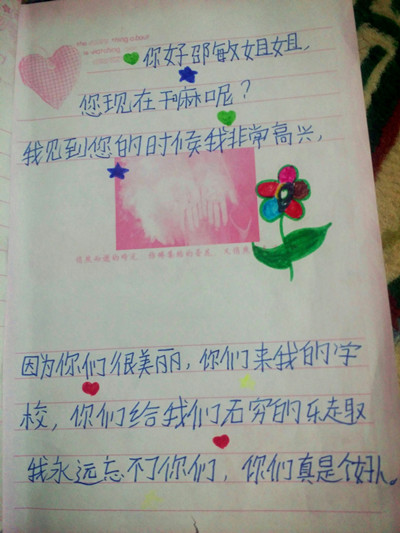 你好邵敏姐姐,
您现在干麻呢?
我见到您的时候我非常高兴,
因为你们很美丽,你们来我的学
校,你们给我们石穷的乐趣
我永远忘不了你们,你们真是个好人.